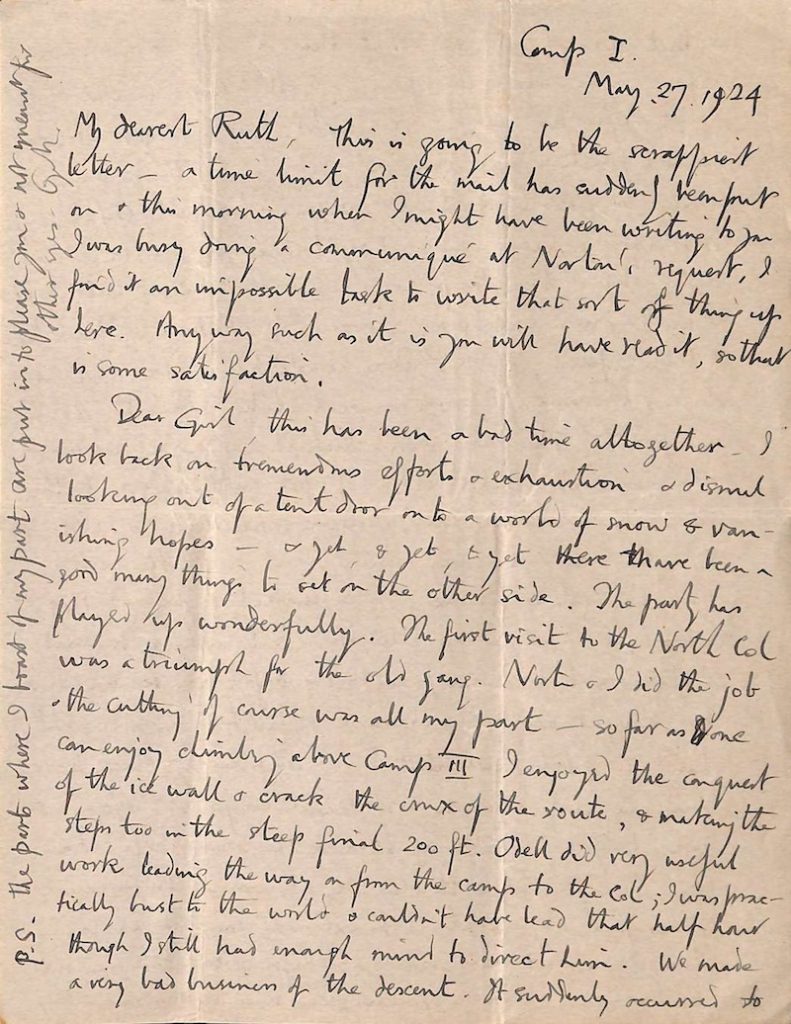 Camp I.
May. 27. 1924
My dearest Ruth, This is going to be the scrappiest
letter – a time limit for the mail has suddenly been put
on & this morning when I might have been writing to you
I was busy doing a communiqué at Norton's request, I
find it an impossible task to write that sort of thing up
here. Anyway such as it is you will have read it, so that
is some satisfaction.
Dear Girl, this has been a bad time altogether – I
look back on tremendous efforts & exhaustion & dismal
looking out of a tent door onto a world of snow & van-
ishing hopes – & yet, & yet, & yet there have been a
good many things to set on the other side. The party has
played up wonderfully. The first visit to the North Col
was a triumph for the old gang. Norton & I did the job
& the cutting of course was all my part – so far as one
can enjoy climbing above Camp III I enjoyed the conquest
of the ice wall & crack the crux of the route, & making the
steps too in the steep final 200 ft. Odell did very useful
work leading the way on from the camp to the Col; I was prac-
tically bust to the world & couldn't have lead that half hour
though I still had enough mind to direct him. We made
a very bad business of the descent. It suddenly occurred to
P.S. the parts where I boast of my part are put in to please you & not meant for
other eyes – G.M.